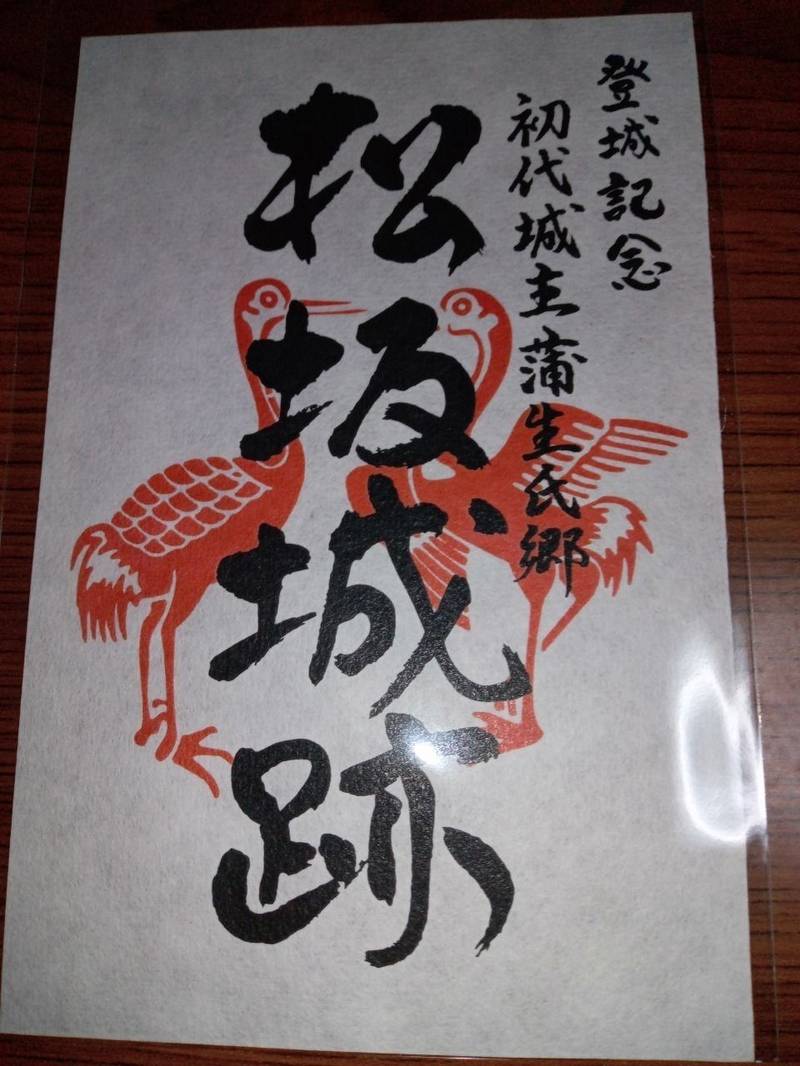 登城記念
初代城主蒲生氏郷
松坂城跡